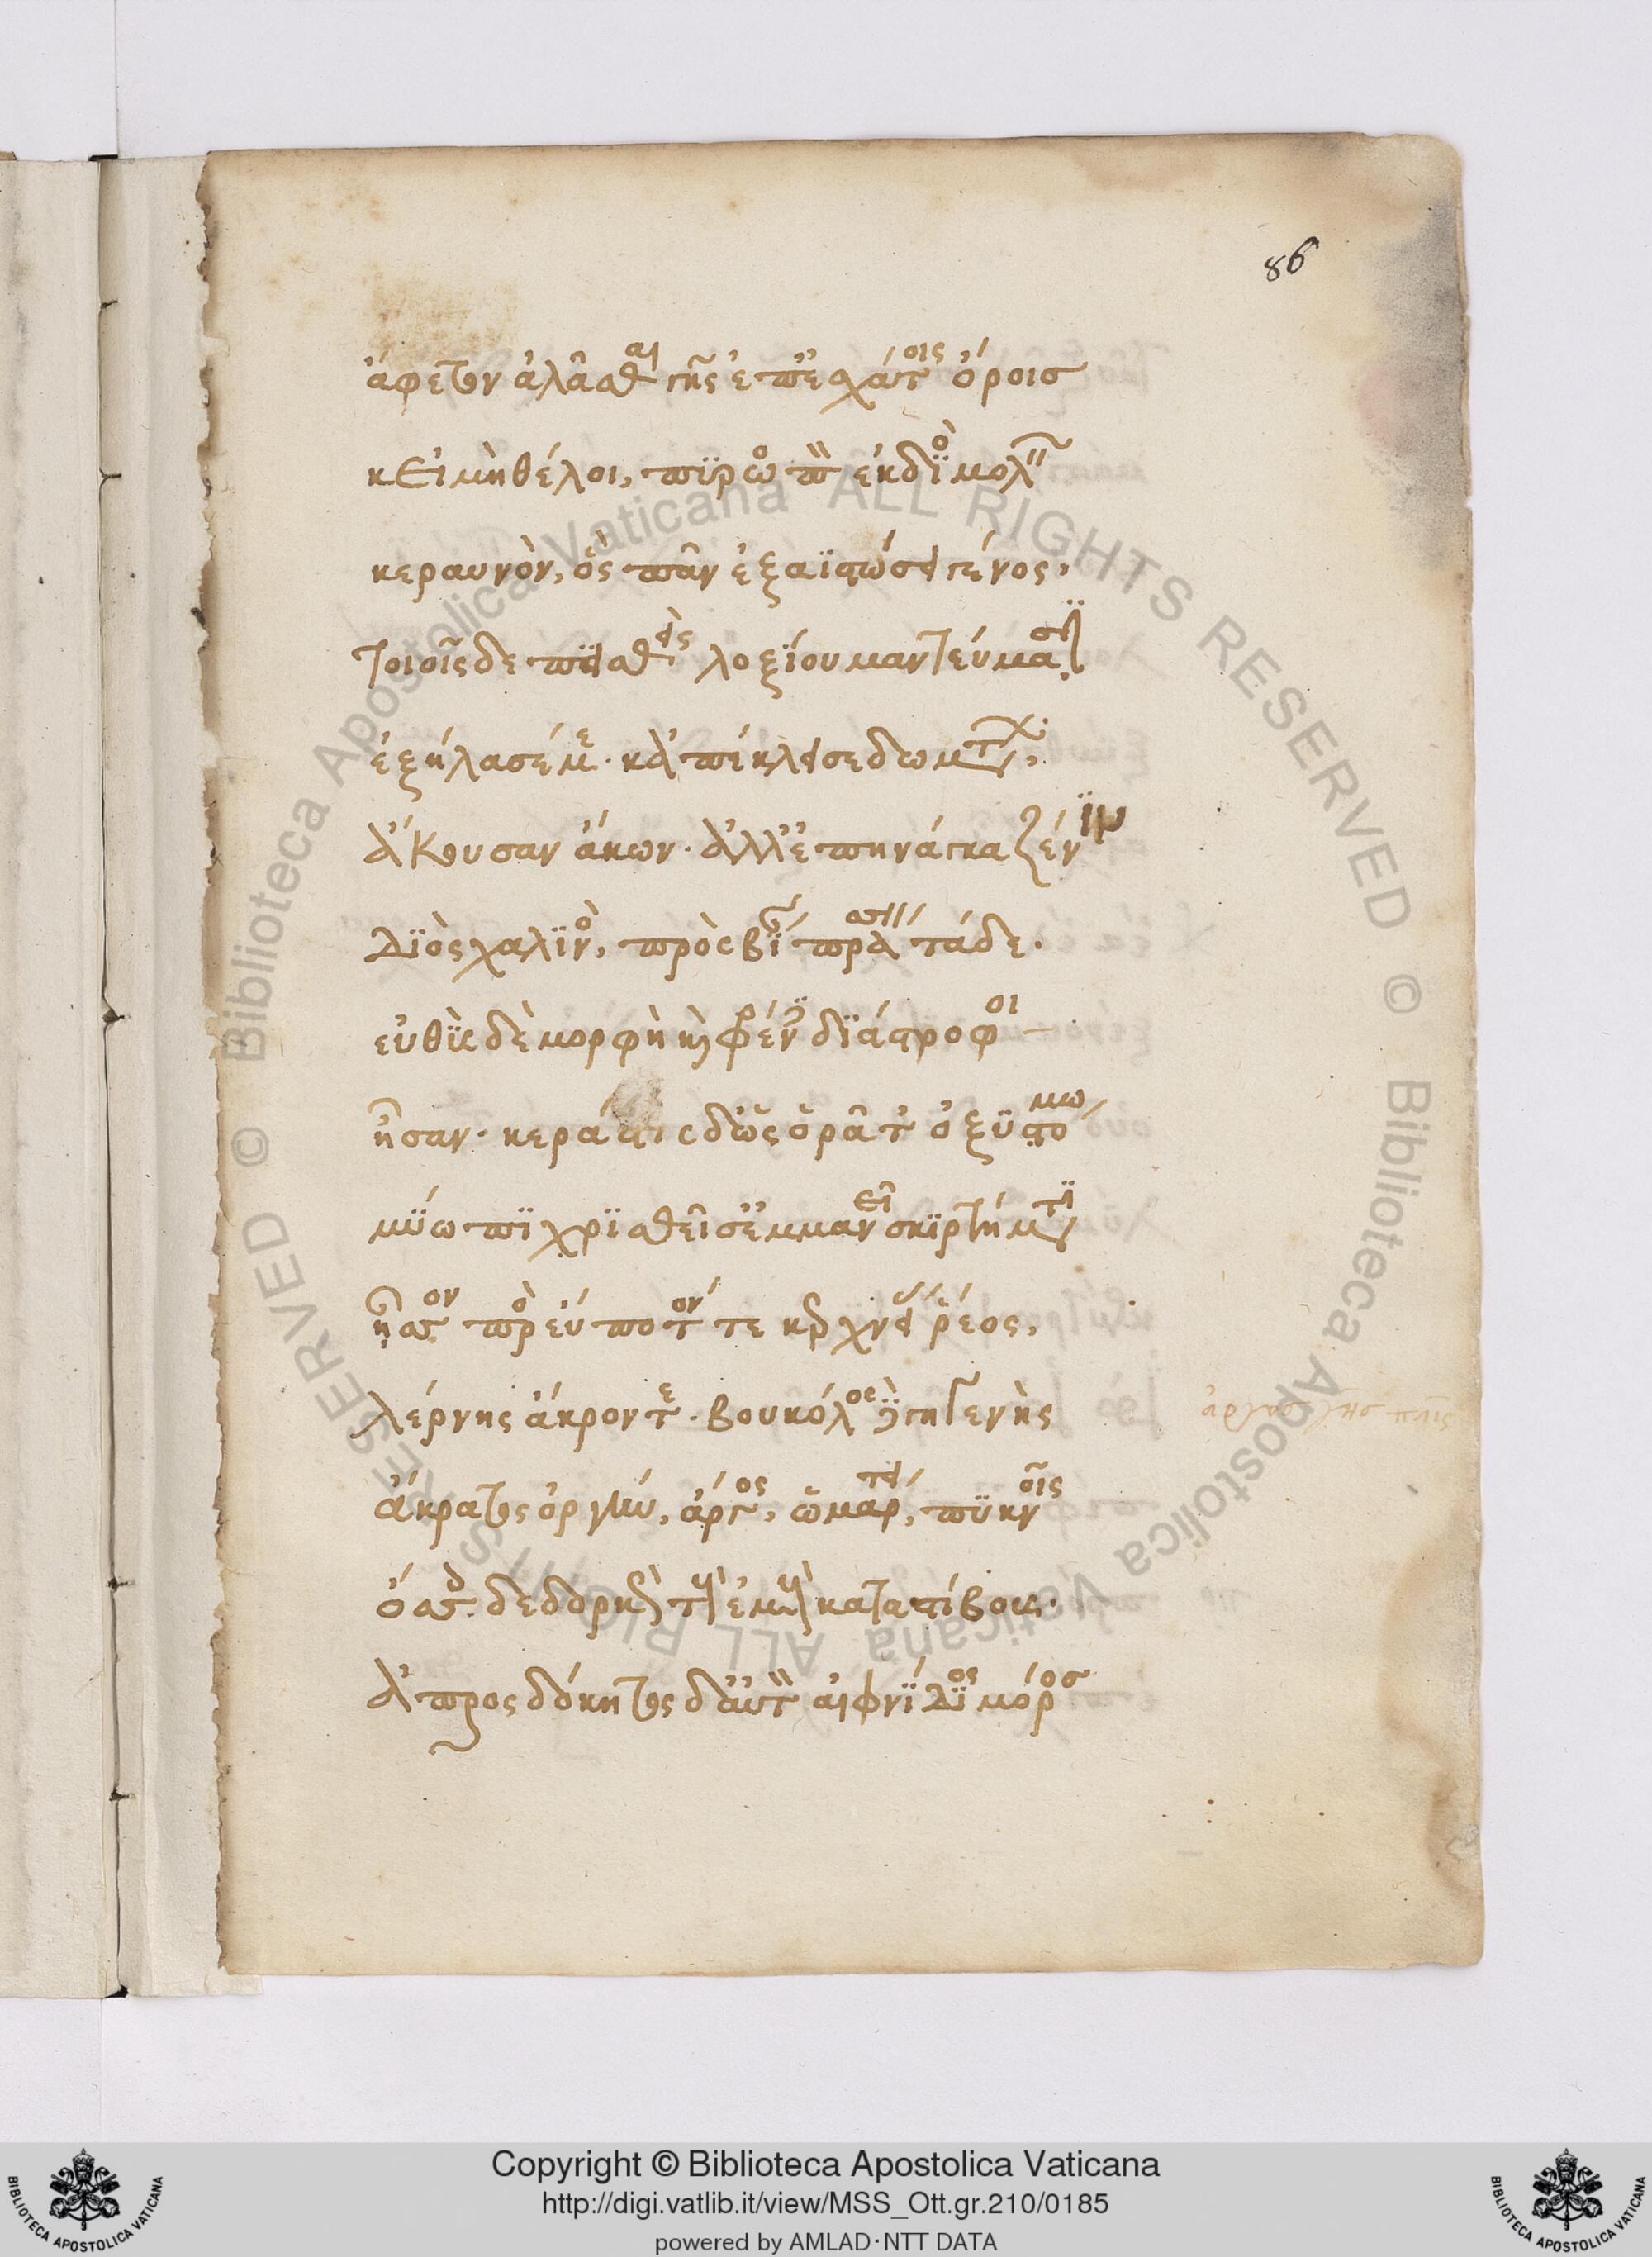 86
ἄφετον ἀλᾶσθαι γῆς ἐπ' ἐσχάτοις ὅροισ
κεἰ μὴ θέλοι, πϋρωπὸν ἐκ δϊὸς μολεῖν
κεραυνὸν, ὃς πᾶν ἐξαϊστώσει γένος.
τοιοῖσδε πϊσθεὶς λοξίου μαντεύμασϊν
ἐξήλασέν με. κἀπέκλεισε δωμάτων,
ἄκουσαν ἄκων. ἀλλ' ἐπηνάγκαζέ νϊν
Δϊὸς χαλϊνὸς, πρὸς βίαν πράσσειν τάδε.
εὐθὺς δὲ μορφὴ καὶ φρένες δϊάστροφοι
ἦσαν. κεράστις δ' ὡς ὁρᾶτ' ὀξϋστόμω
μύωπϊ χρϊσθεῖσ' ἐμμανεῖ σκϊρτήματϊ
ᾖσσον πρὸς εὔποτόν τε κερχνείας ῥέος,
λέρνης ἄκρον τε. βουκόλος δὲ γηγενὴς
ἄκρατος ὀργὴν, ἄργος, ὡμάρτει, πϋκνοῖς
ὄσσοις δεδορκὼς τοὺς ἐμοὺς κατὰ στίβους.
ἀπροσδόκητος δ' αὐτὸν αἰφνίδϊος μόροσ
Copyright © Biblioteca Apostolica Vaticana
http://digi.vatlib.it/view/MSS_Ott.gr.210/0185
powered by AMLAD·NTT DATA
BIBLIOTECA APOSTOLICA VATICANA
BIBLIOTECA APOSTOLICA VATICANA
Biblioteca Apostolica Vaticana ALL RIGHTS RESERVED ©
Biblioteca Apostolica Vaticana ALL RIGHTS RESERVED ©